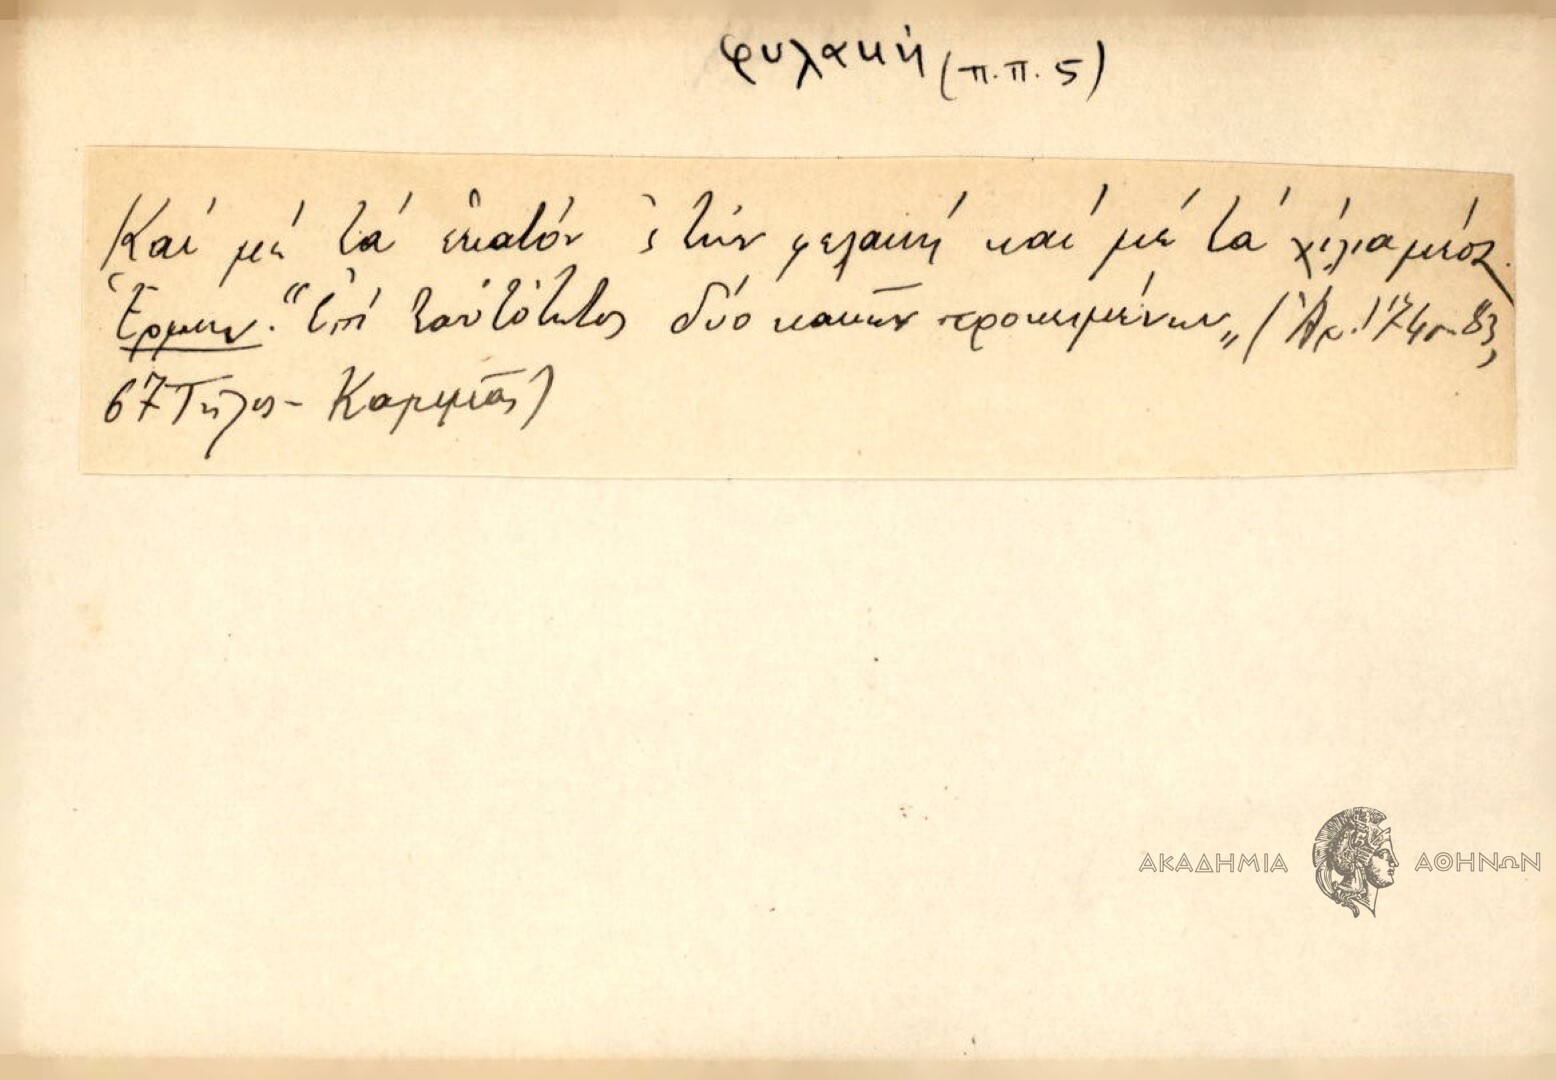 φυλακή (π.π. 5)
Καί μέ τά ἑκατόν ς τήν φελακή καί μέ τά χίλια μέσ̣
Ἑρμην. "Ἐπί ταὐτότητος δύο κακῶν προκειμένων„ (Ἀρ. 174 83,
67 Τῆλος - Καμμᾶς)
ΑΚΑΔΗΜΙΑ ΑΘΗΝΩΝ